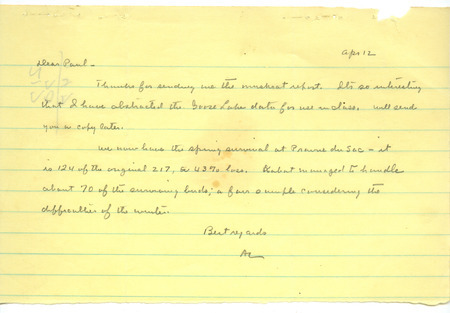 Apr 12
Dear Paul -
Thanks for sending me the muskrat report. It's so interesting
that I have abstracted the Goose Lake data for use in class. Will send
you a copy later.
We now have the spring survival at Prairie du Sac - it
is 124 of the original 217, or 43% loss. Kabat managed to handle
about 70 of the surviving birds; a fair sample considering the
difficulties of the winter.
Best regards
AL